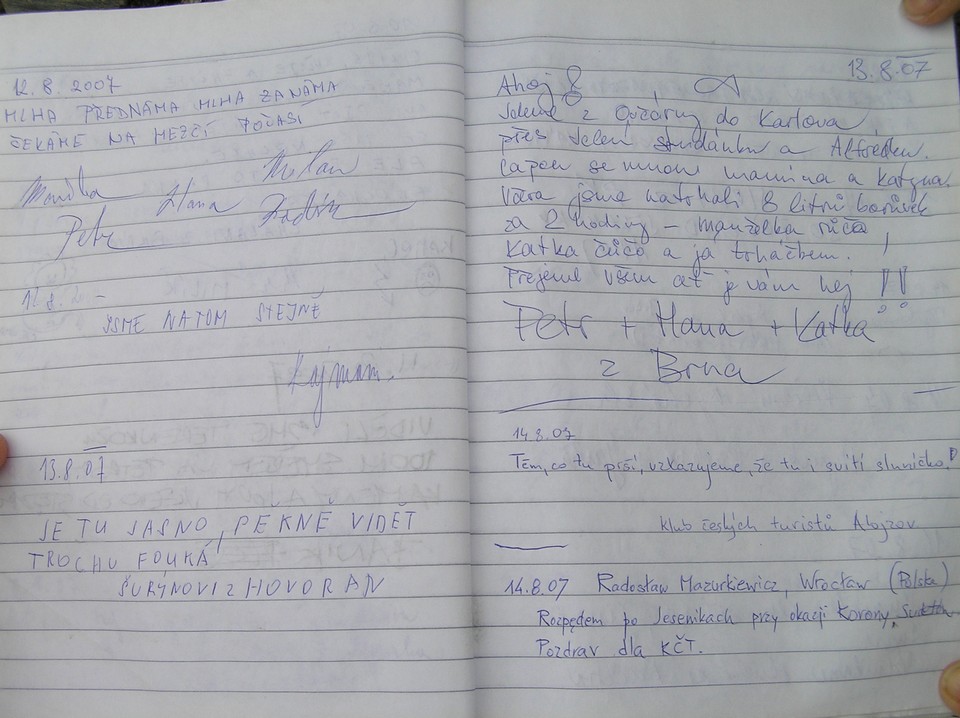 12.8.2007
MLHA PŘEDNÁMA MLHA ZANÁMA
ČEKÁME NA HEZČÍ POČASÍ
Milan
Monika Hana
Petr Radim
12.8. -
JSME NATOM STEJNĚ
Kajman.
13.8.07
JE TU JASNO, PĚKNĚ VIDĚT
TROCHU FOUKÁ
ŠURÝNOVI Z HOVORAN
13.8.07
Ahoj
Jdeme z Ovčárny do Karlova,
přes Jelení studánku a Alfrédku.
Capen se mnou mamina a Katyna.
Včera jsme natrhali 8 litrů borůvek
za 2 hodiny – manželka
Katka a já trháčbem.
Přejeme všem ať je vám hej !!!
Petr + Hana + Katka
z Brna
14.8.07
Těm, co tu prší, vzkazujeme, že tu i svítí sluníčko!
klub českých turistů Alojzov
14.8.07 Radosław Mazurkiewicz, Wrocław (Polska)
Rozpędem po Jesenikach przy okazji Korony.
Pozdrav dla KČT.